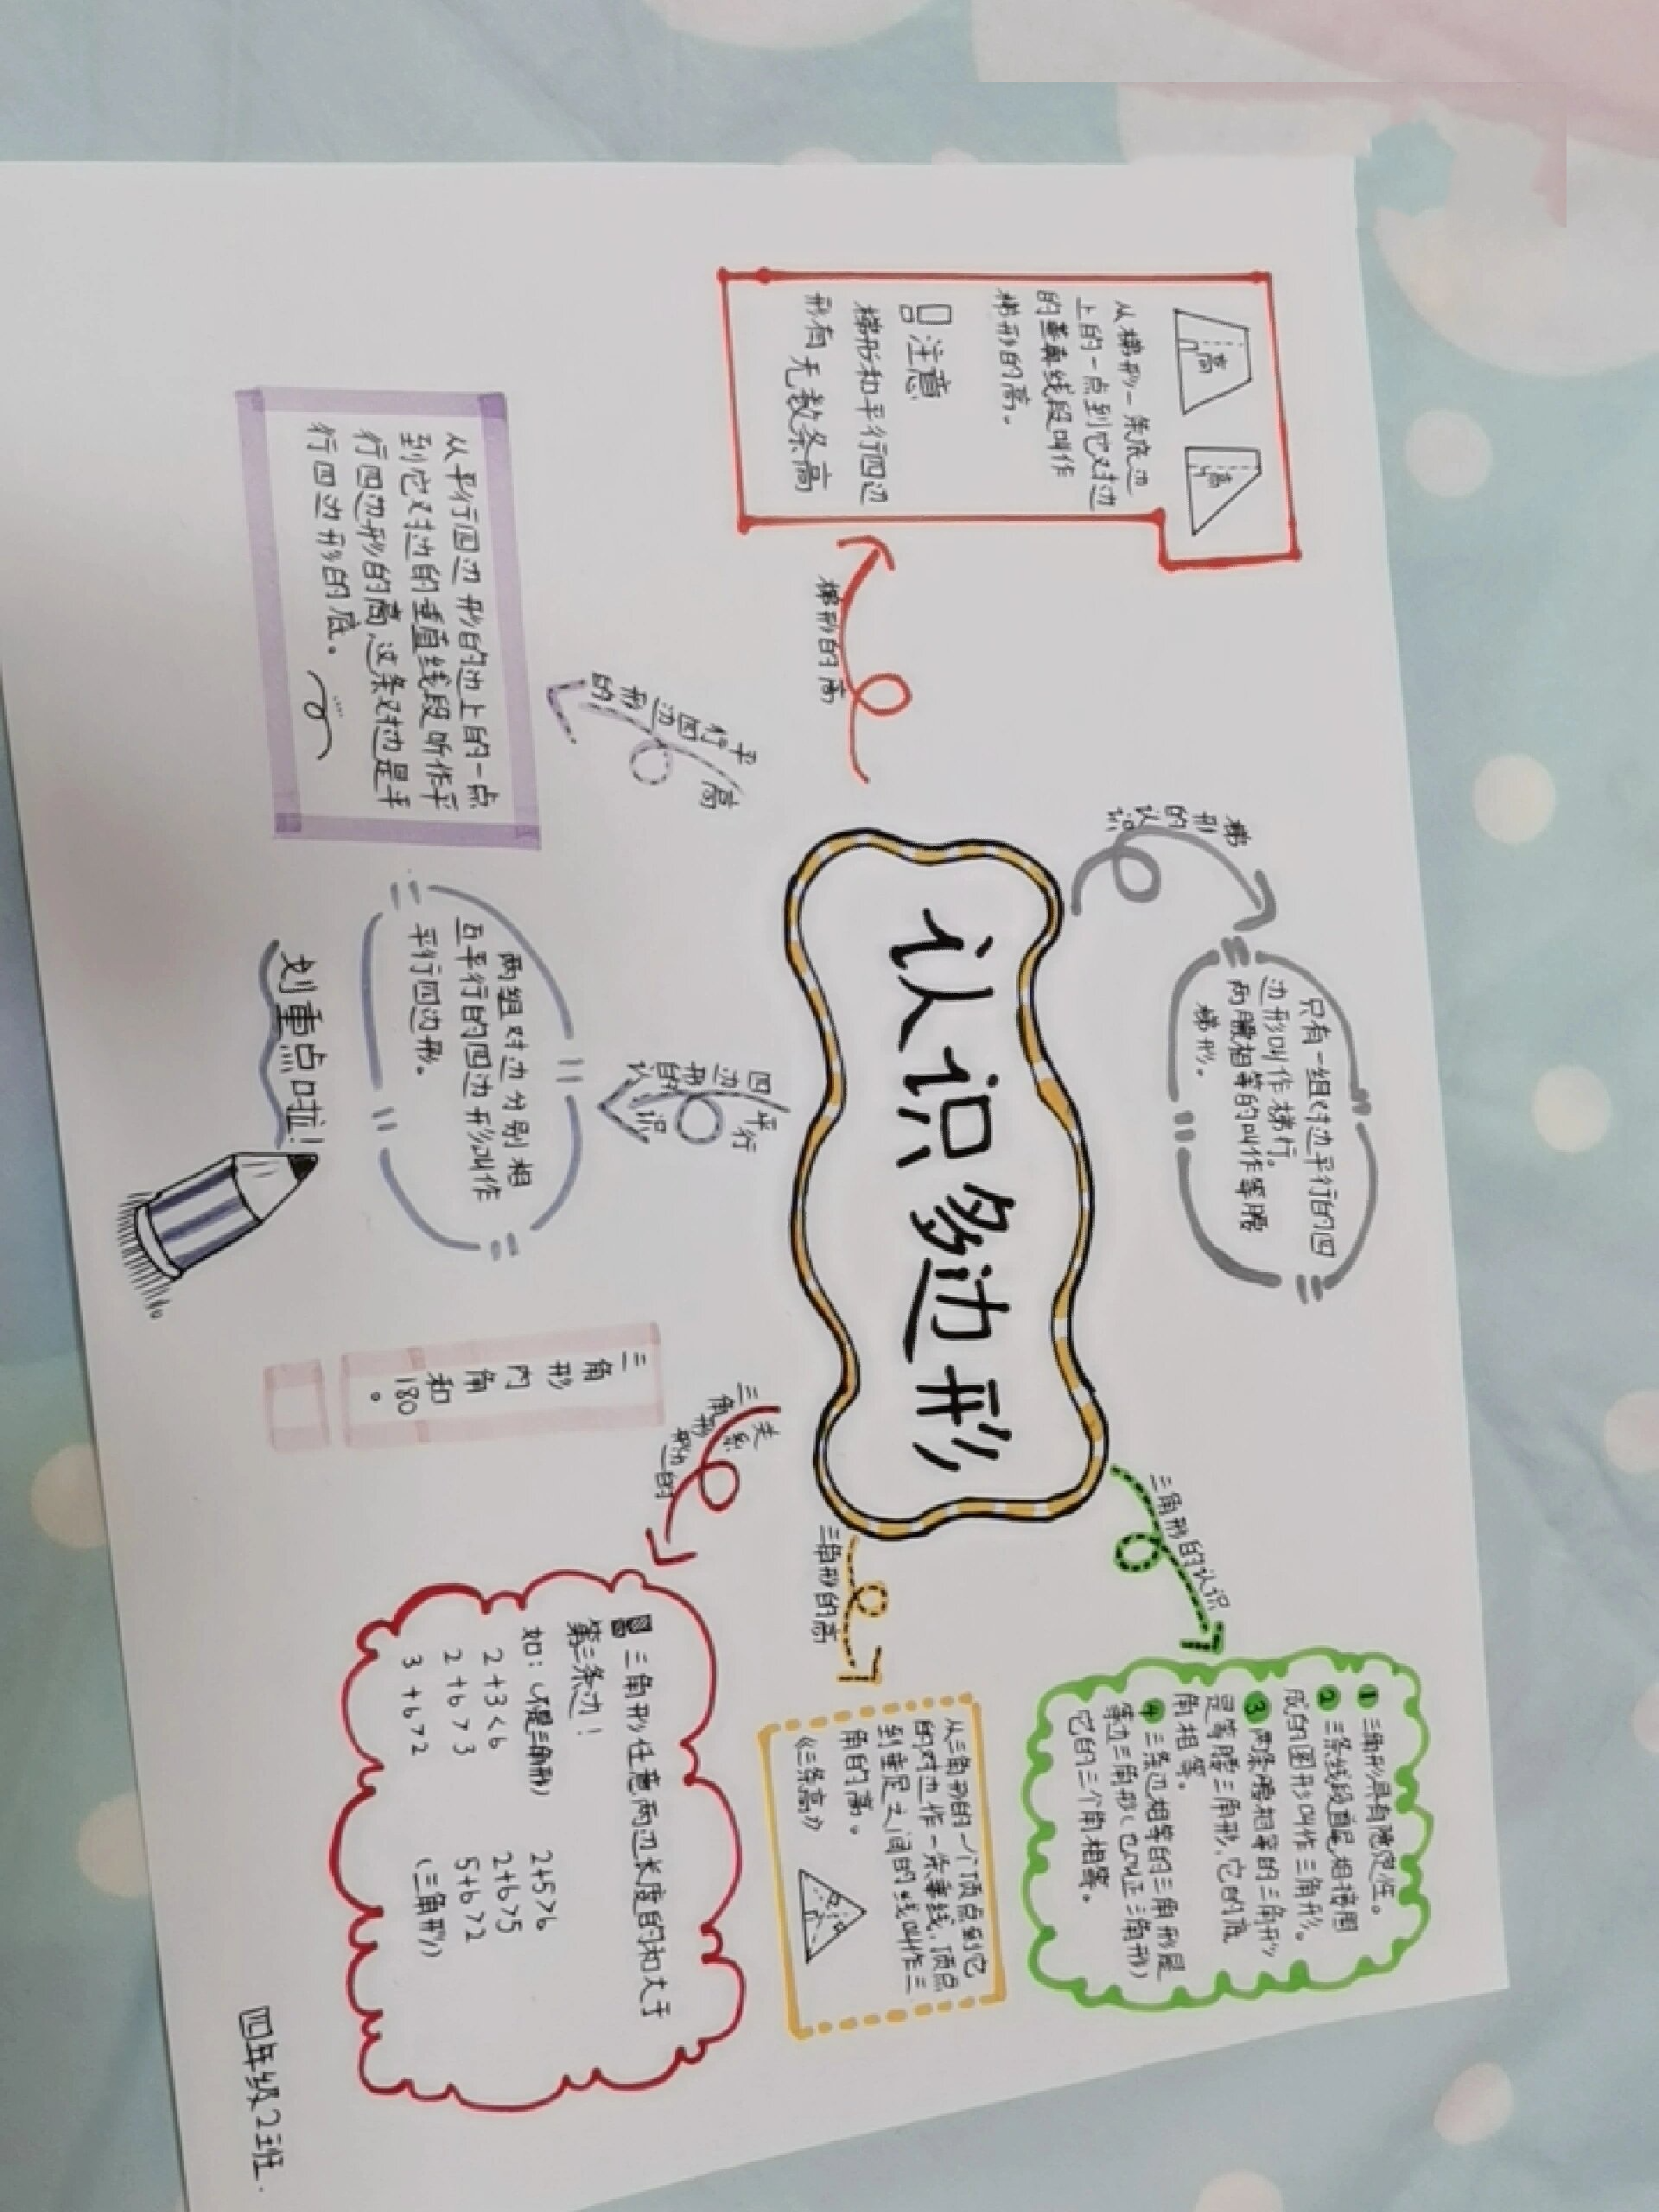 认识多边形
梯形的认识
只有一组对边平行的四
边形叫作梯行。
两腰相等的叫作等腰
梯形。
梯形的高
高
高
从梯形一条底边
上的一点到它对边
的垂直线段叫作
梯形的高。
注意
梯形和平行四边
形有无数条高
平行四边形的高
从平行四边形的边上的一点
到它对边的垂直线段听作平
行四边形的高,这条对边是平
行四边形的底。
平行四边形的认识
两组对边分别相
互平行的四边形叫作
平行四边形。
划重点啦!
三角形内角和180°
三角形的认识
① 三角形具有隐定性。
② 三条线段首尾相接围
成的图形叫作三角形。
③ 两条腰相等的三角形
是等腰三角形,它的底
角相等。
④ 三条边相等的三角形是
等边三角形(也叫正三角形)
它的三个角相等。
三角形的高
从三角形的一个顶点到它
的对边作一条垂线,顶点
到垂足之间的线叫作三
角的高。
《三条高》
三角形边的关系
三角形任意两边长度的和大于
第三条边!
如:(不是三角形)
2+3<6
2+6>3
3+6>2
2+5>6
2+6>5
5+6>2
(三角形)
四年级2班.